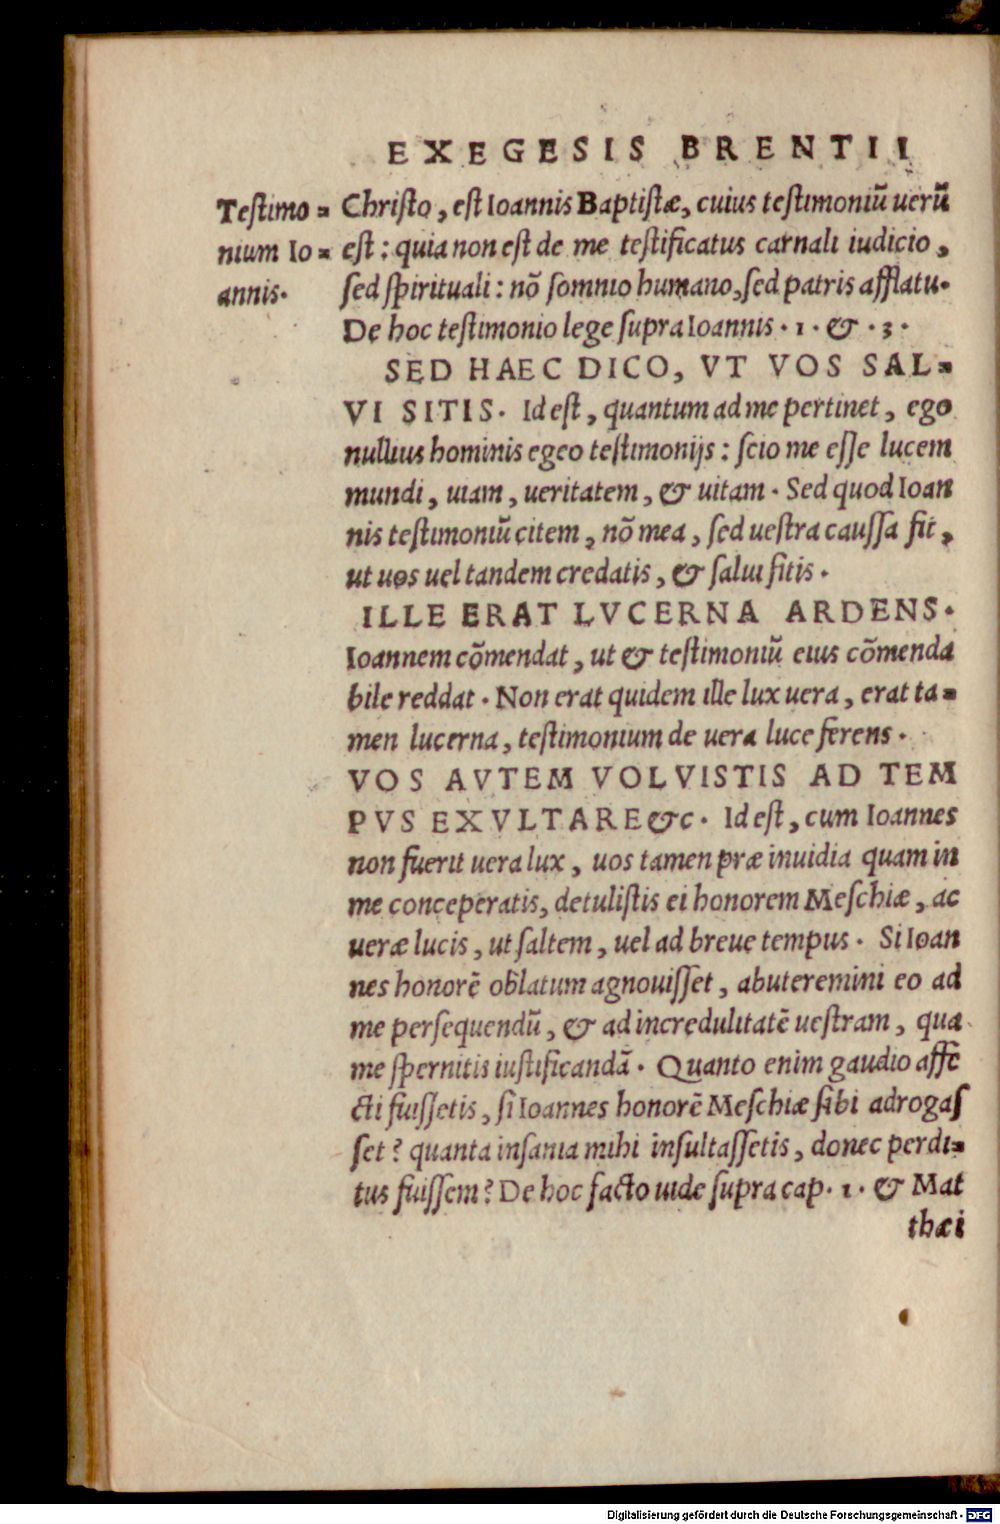 EXEGESIS BRENTII
Testimo=
nium Io=
annis.
Christo, est Ioannis Baptistæ, cuius testimoniũ uerũ
est: quia non est de me testificatus carnali iudicio,
sed spirituali: nõ somnio humano, sed patris afflatu.
De hoc testimonio lege supra Ioannis. 1. & .3.
SED HAEC DICO, VT VOS SAL=
VI SITIS. Id est, quantum ad me pertinet, ego
nullius hominis egeo testimonijs: scio me esse lucem
mundi, uiam, ueritatem, & uitam. Sed quod Ioan
nis testimoniũ citem, nõ mea, sed uestra caussa fit,
ut uos uel tandem credatis, & salui sitis.
ILLE ERAT LVCERNA ARDENS.
Ioannem cõmendat, ut & testimoniũ eius cõmenda
bile reddat. Non erat quidem ille lux uera, erat ta=
men lucerna, testimonium de uera luce ferens.
VOS AVTEM VOLVISTIS AD TEM
PVS EXVLTARE &c. Id est, cum Ioannes
non fuerit uera lux, uos tamen præ inuidia quam in
me conceperatis, detulistis ei honorem Meschiæ, ac
ueræ lucis, ut saltem, uel ad breue tempus. Si Ioan
nes honorẽ oblatum agnouisset, abuteremini eo ad
me persequendũ, & ad incredulitatẽ uestram, qua
me spernitis iustificandã. Quanto enim gaudio affe
cti fuissetis, si Ioannes honorẽ Meschiæ sibi adrogas
set? quanta insania mihi insultassetis, donec perdi=
tus fuissem? De hoc facto uide supra cap. 1. & Mat
thæi
Digitalisierung gefördert durch die Deutsche Forschungsgemeinschaft - DFG